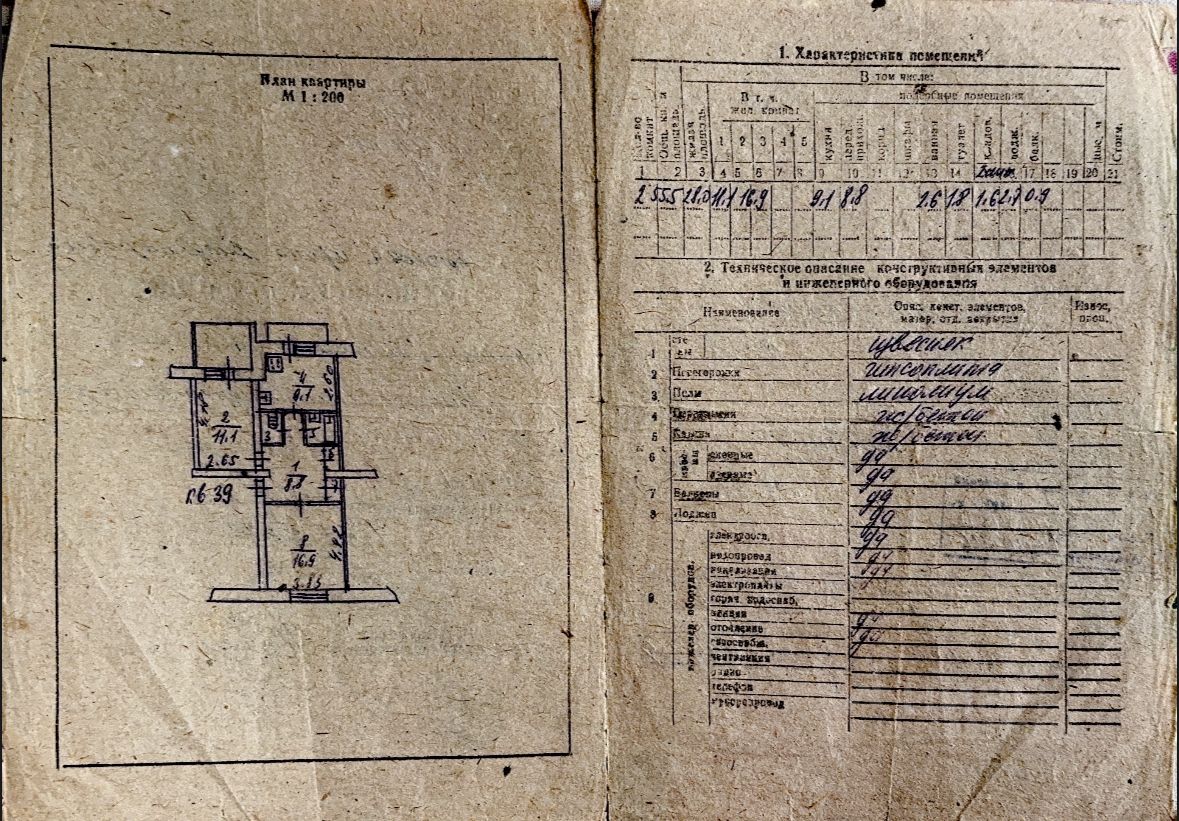 План квартиры
М 1 : 200
4
9.1
2
11.1
2.65
3
1
8.8
кв 39
8
16.9
4.42
3.85
1. Характеристика помещений
В том числе:
В т. ч.
жил. комнат
подсобные помещения
комнат
площадь
жилая
площадь
1 2 3 4 5
кухня
перед.
прихож.
корид.
шкафы
ванная
туалет
кладов.
лодж.
балк.
Стоим.
1 2 3 4 5 6 7 8 9 10 11 12 13 14 17 18 19 20 21
2 55.5 28.0 11.1 16.9 9.1 8.8 2.6 1.8 1.6 2.7 0.9
2. Техническое описание конструктивных элементов
и инженерного оборудования
Наименование
Опис. конст. элементов,
матер., отд. покрытия
Износ,
проц.
1 стены
2 Перегородки гипсоплита
3 Полы линолиум
4 Перекрытия ж/бетон
5 Крыша ж/бетон
6 оконные да
дверные да
7 Балконы да
8 Лоджии да
9 инженер. оборудов.
электроосв. да
водопровод да
канализация да
электроплиты
горяч. водоснаб.
ванная
отопление да
газоснабж. да
вентиляция
радио
телефон
мусоропровод